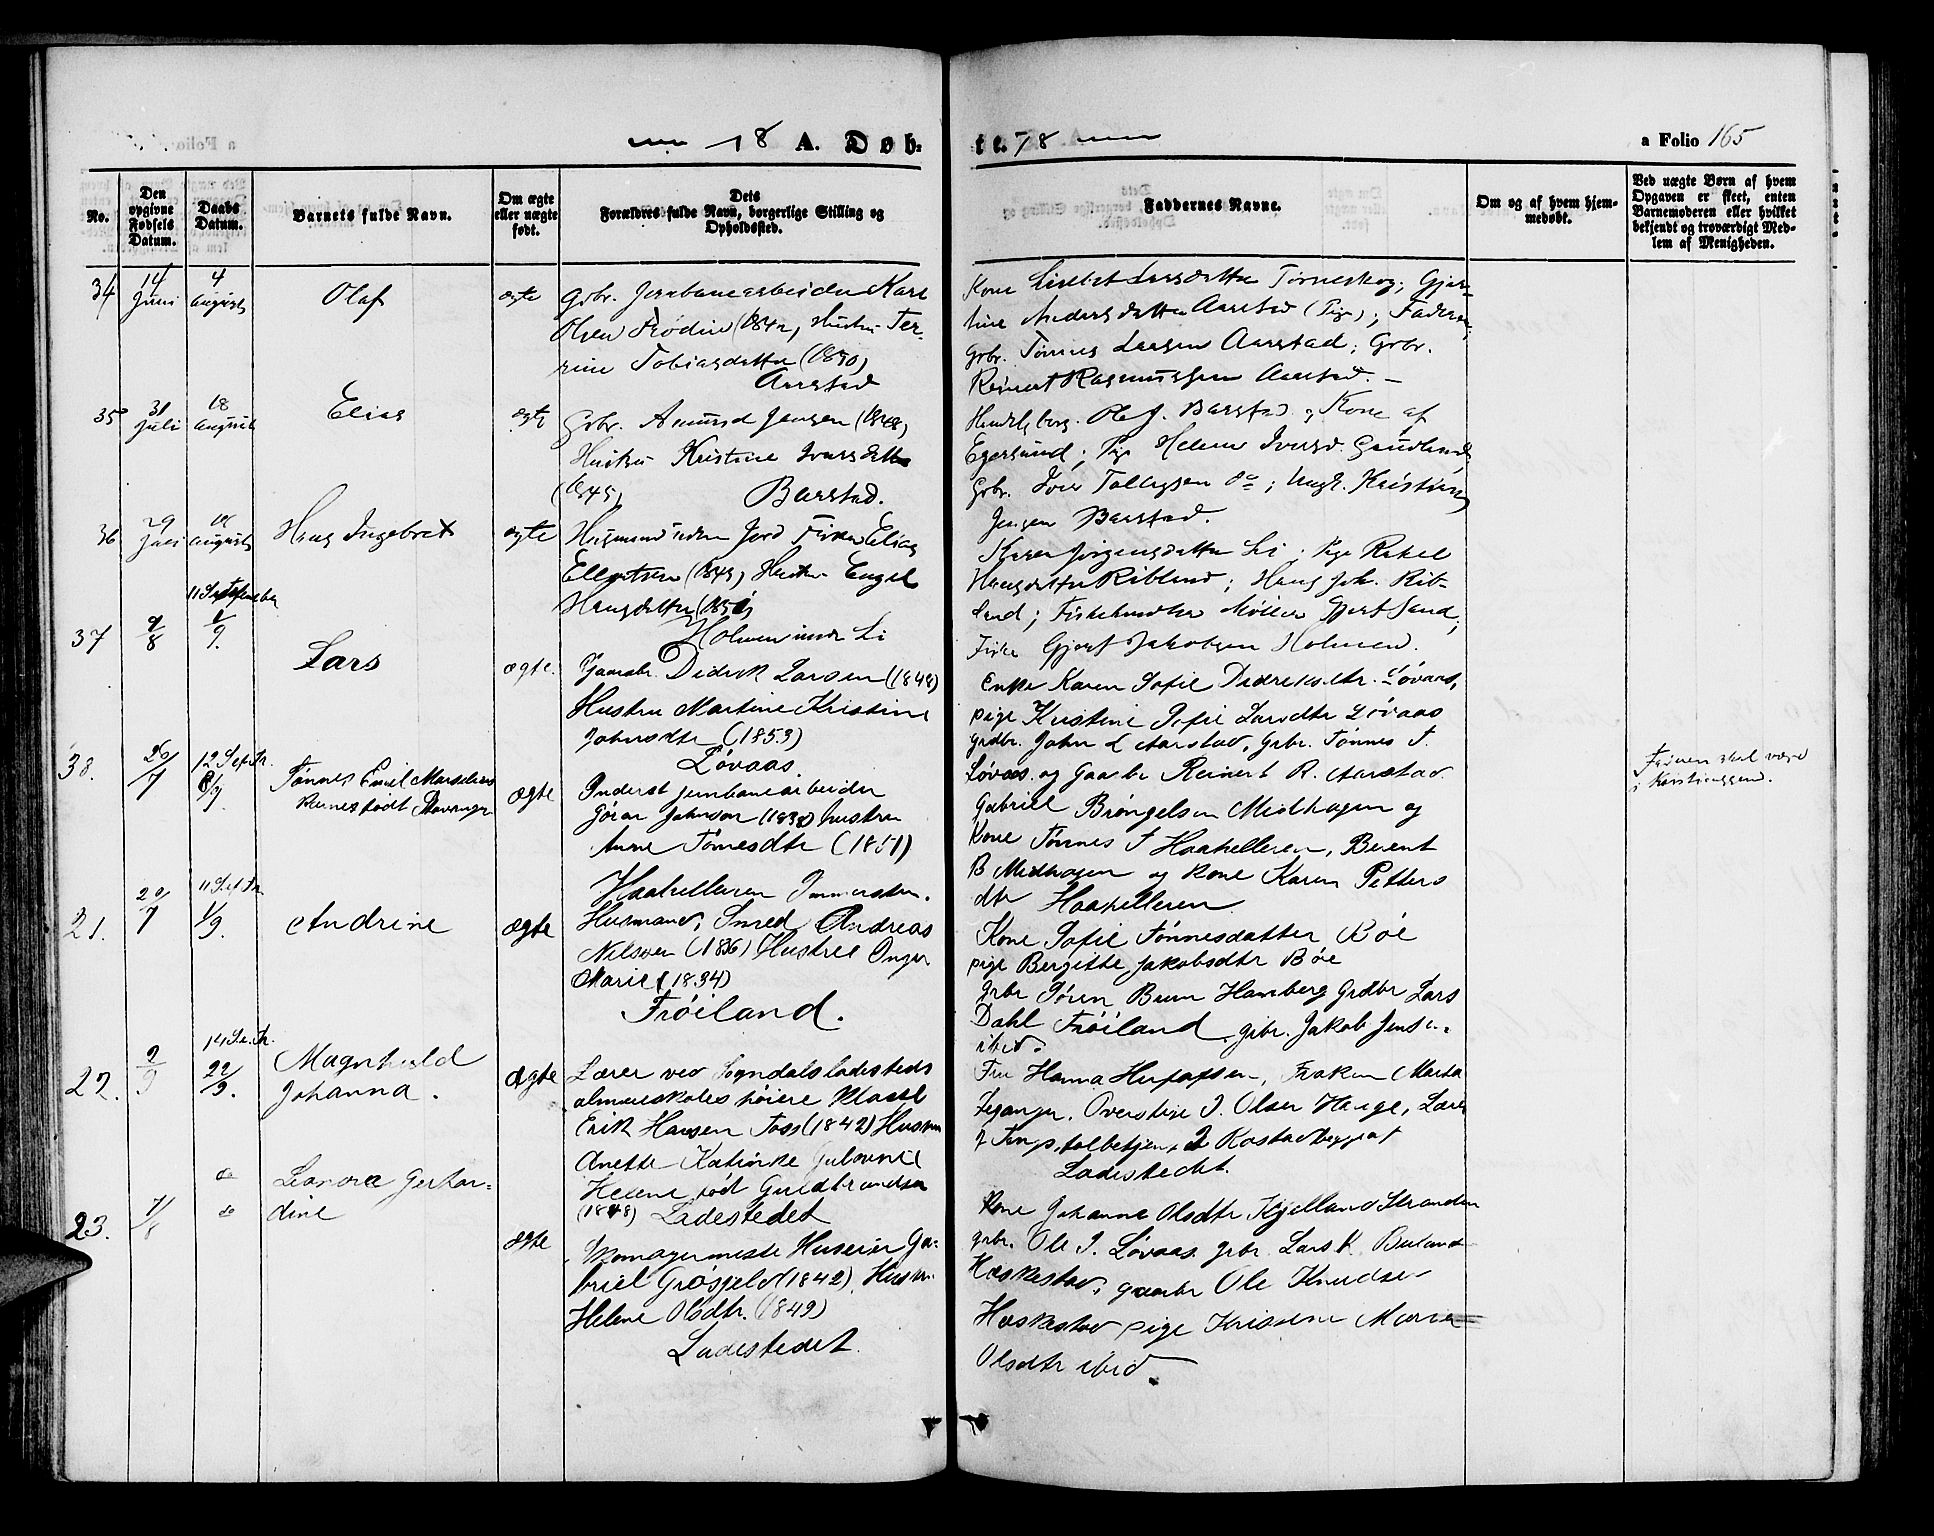 18 A. Døb-
tt. 78
a Folio 165
No.
Den opgivne Fødsels Datum.
Daabs Datum.
Barnets fulde Navn.
Om ægte eller uægte født.
Dets Forældres fulde Navn, borgerlige Stilling og Opholdssted.
Faddernes Navne.
Om og af hvem hjemmedøbt.
Ved uægte Børn af hvem Opgaven er skeet, enten Barnemoderen eller hvilket bekjendt og troværdigt Medlem af Menigheden.
34
14 Juni
4 August
Olaf
ægte
Gbr. Jernbanearbeider Karl
Olsen Frødin (1842) Hustru Ter-
rine Tobiasdatter (1850)
Aarstad
Kone Lisebet Larsdatter Tørneskog; Gjer-
tine Andersdatter Aarstad (Pige); Faderen,
Grbr. Tønnes Larsen Aarstad; Grbr.
Reinert Rasmussen Aarstad. —
35
31 Juli
18 August
Elias
ægte
Grbr. Amund Jensen (1848)
Hustru Kristine Iversdatter
(1845) Barstad.
Ole J. Barstad og Kone af
Egersund; Pige Helene Iversd. Gaudland
Grbr. Iver Tollagsen do; Ungk. Kristian
Jensen Barstad.
36
29 Juli
18 August
Hans Ingebret
ægte
Husmand uden Jord Fisker Elias
Ellertsen (1845) Hustru Engel
Hansdatter (1851)
Holmen under Li
Karen Jørgensdatter Li; Pige Rakel
Hansdatter Ribland; Hans Joh. Rib-
land; Fiskehandler Møller Gjert Sand,
Fisker Gjert Jakobsen Holmen.
37
9/8
11 September
1/9.
Lars
ægte.
Gaardbr. Didrik Larsen (1848)
Hustru Martine Kristine
Johnsdtr (1853)
Løvaas.
Enke Karen Sofie Dedreksdtr. Løvaas,
pige Kristine Sofie Larsdtr Løvaas
Grdbr. John L Aarstad, Grbr. Tønnes T.
Løvaas og Gaarbr Reinert R. Aarstad
38.
26/7
12 Septbr.
8/9
Tønnes Emil Marselius
ægte
Inderst jernbanearbeider
Göran Johnson (1838) hustru
Anne Tønnesdtr (1851)
Haakelleren
Gabriel Brøngelsen Midhagen og
Kone Tønnes T Haakelleren, Berent
B Midhagen og Kone Karen Petters
dtr Haakelleren
Faderen skal være
i
21.
20/7
11 Septbr.
1/9.
Andrine
ægte
Husmand, Smed Andreas
Nilsen (1836) Hustru Inger
Marie (1834)
Frøiland.
Kone Sofie Tønnesdatter Bøe
pige Bergitte Jakobsdtr Bøe
grbr Søren Hamberg Grdbr Lars
Dahl Frøiland, grbr. Jakob Jensen
ibid.
22.
2/9
14 Se.br.
22/9.
Magnhild
Johanna.
ægte
Lærer ved Sogndals ladesteds
almueskoles høiere Klasse
Erik Hansen Foss (1842) Hustru
Anette Katinke
Helene født Guldbrandsen
(1848) Ladestedet
Fru Hanna, Frøken Marta
J. Olsen Hauge, Lærer
Ladestedet.
23.
7/8
do
do
Leonore Gerhar-
dine
ægte
Skomagermester Huseier Ga-
briel Grøsfjeld (1842), Hustru
Helene Olsdtr. (1849)
Ladestedet.
Kone Johanne Olsdtr Kjelland Stranden
grbr. Ole J. Løvaas, grbr. Lars K. Buland
Heskestad, gaarbr Ole Knudsen
Heskestad pige Marie
Olsdtr ibid.